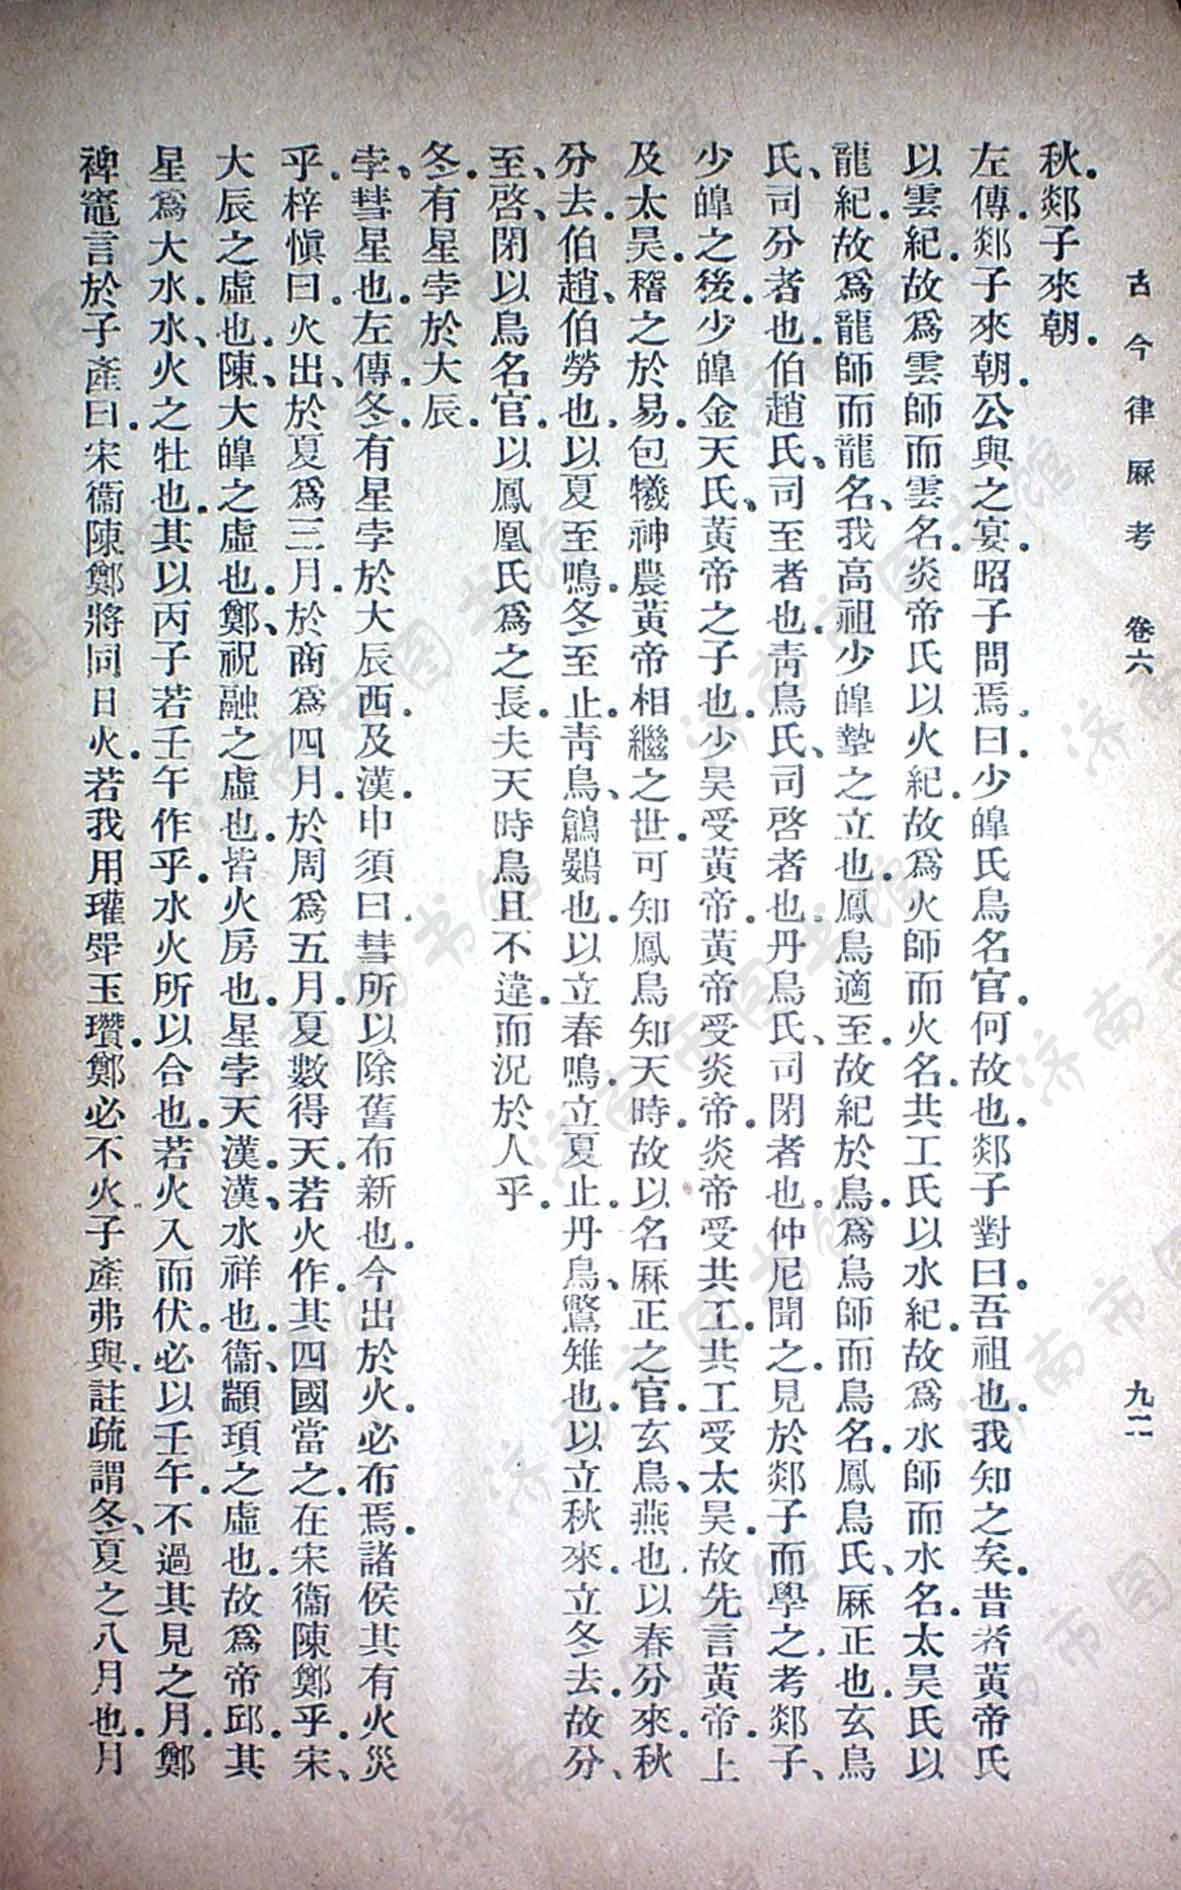 古今律厤考　卷六　九二
秋。郯子來朝。
左傳。郯子來朝。公與之宴。昭子問焉。曰。少皥氏鳥名官。何故也。郯子對曰。吾祖也。我知之矣。昔者黃帝氏
以雲紀。故爲雲師而雲名。炎帝氏以火紀。故爲火師而火名。共工氏以水紀。故爲水師而水名。太昊氏以
龍紀。故爲龍師而龍名、我高祖少皥摯之立也。鳳鳥適至。故紀於鳥。爲鳥師而鳥名。鳳鳥氏、厤正也。玄鳥
氏、司分者也。伯趙氏、司至者也。青鳥氏、司啓者也。丹鳥氏、司閉者也。仲尼聞之。見於郯子而學之。考郯子、
少皥之後。少皥金天氏、黃帝之子也。少昊受黃帝。黃帝受炎帝。炎帝受共工。共工受太昊。故先言黃帝。上
及太昊。稽之於易。包犧神農黃帝相繼之世。可知鳳鳥知天時。故以名厤正之官。玄鳥、燕也。以春分來。秋
分去。伯趙、伯勞也。以夏至鳴。冬至止。青鳥、鶬鷃也。以立春鳴。立夏止。丹鳥、鷩雉也。以立秋來。立冬去。故分、
至、啓、閉以鳥名官。以鳳凰氏爲之長。夫天時鳥且不違。而況於人乎。
冬。有星孛於大辰。
孛、彗星也。左傳。冬。有星孛於大辰西。及漢。申須曰。彗所以除舊布新也。今出於火。必布焉。諸侯其有火災
乎。梓愼曰。火出、於夏爲三月。於商爲四月。於周爲五月。夏數得天。若火作。其四國當之。在宋衞陳鄭乎。宋、
大辰之虛也。陳、大皥之虛也。鄭、祝融之虛也。皆火房也。星孛天漢。漢、水祥也。衞、顓頊之虛也。故爲帝邱。其
星爲大水。水、火之牡也。其以丙子若壬午作乎。水火所以合也。若火入而伏。必以壬午。不過其見之月。鄭
裨竈言於子產曰。宋衞陳鄭將同日火。若我用瓘斝玉瓚。鄭必不火。子產弗與。註疏謂冬、夏之八月也。月